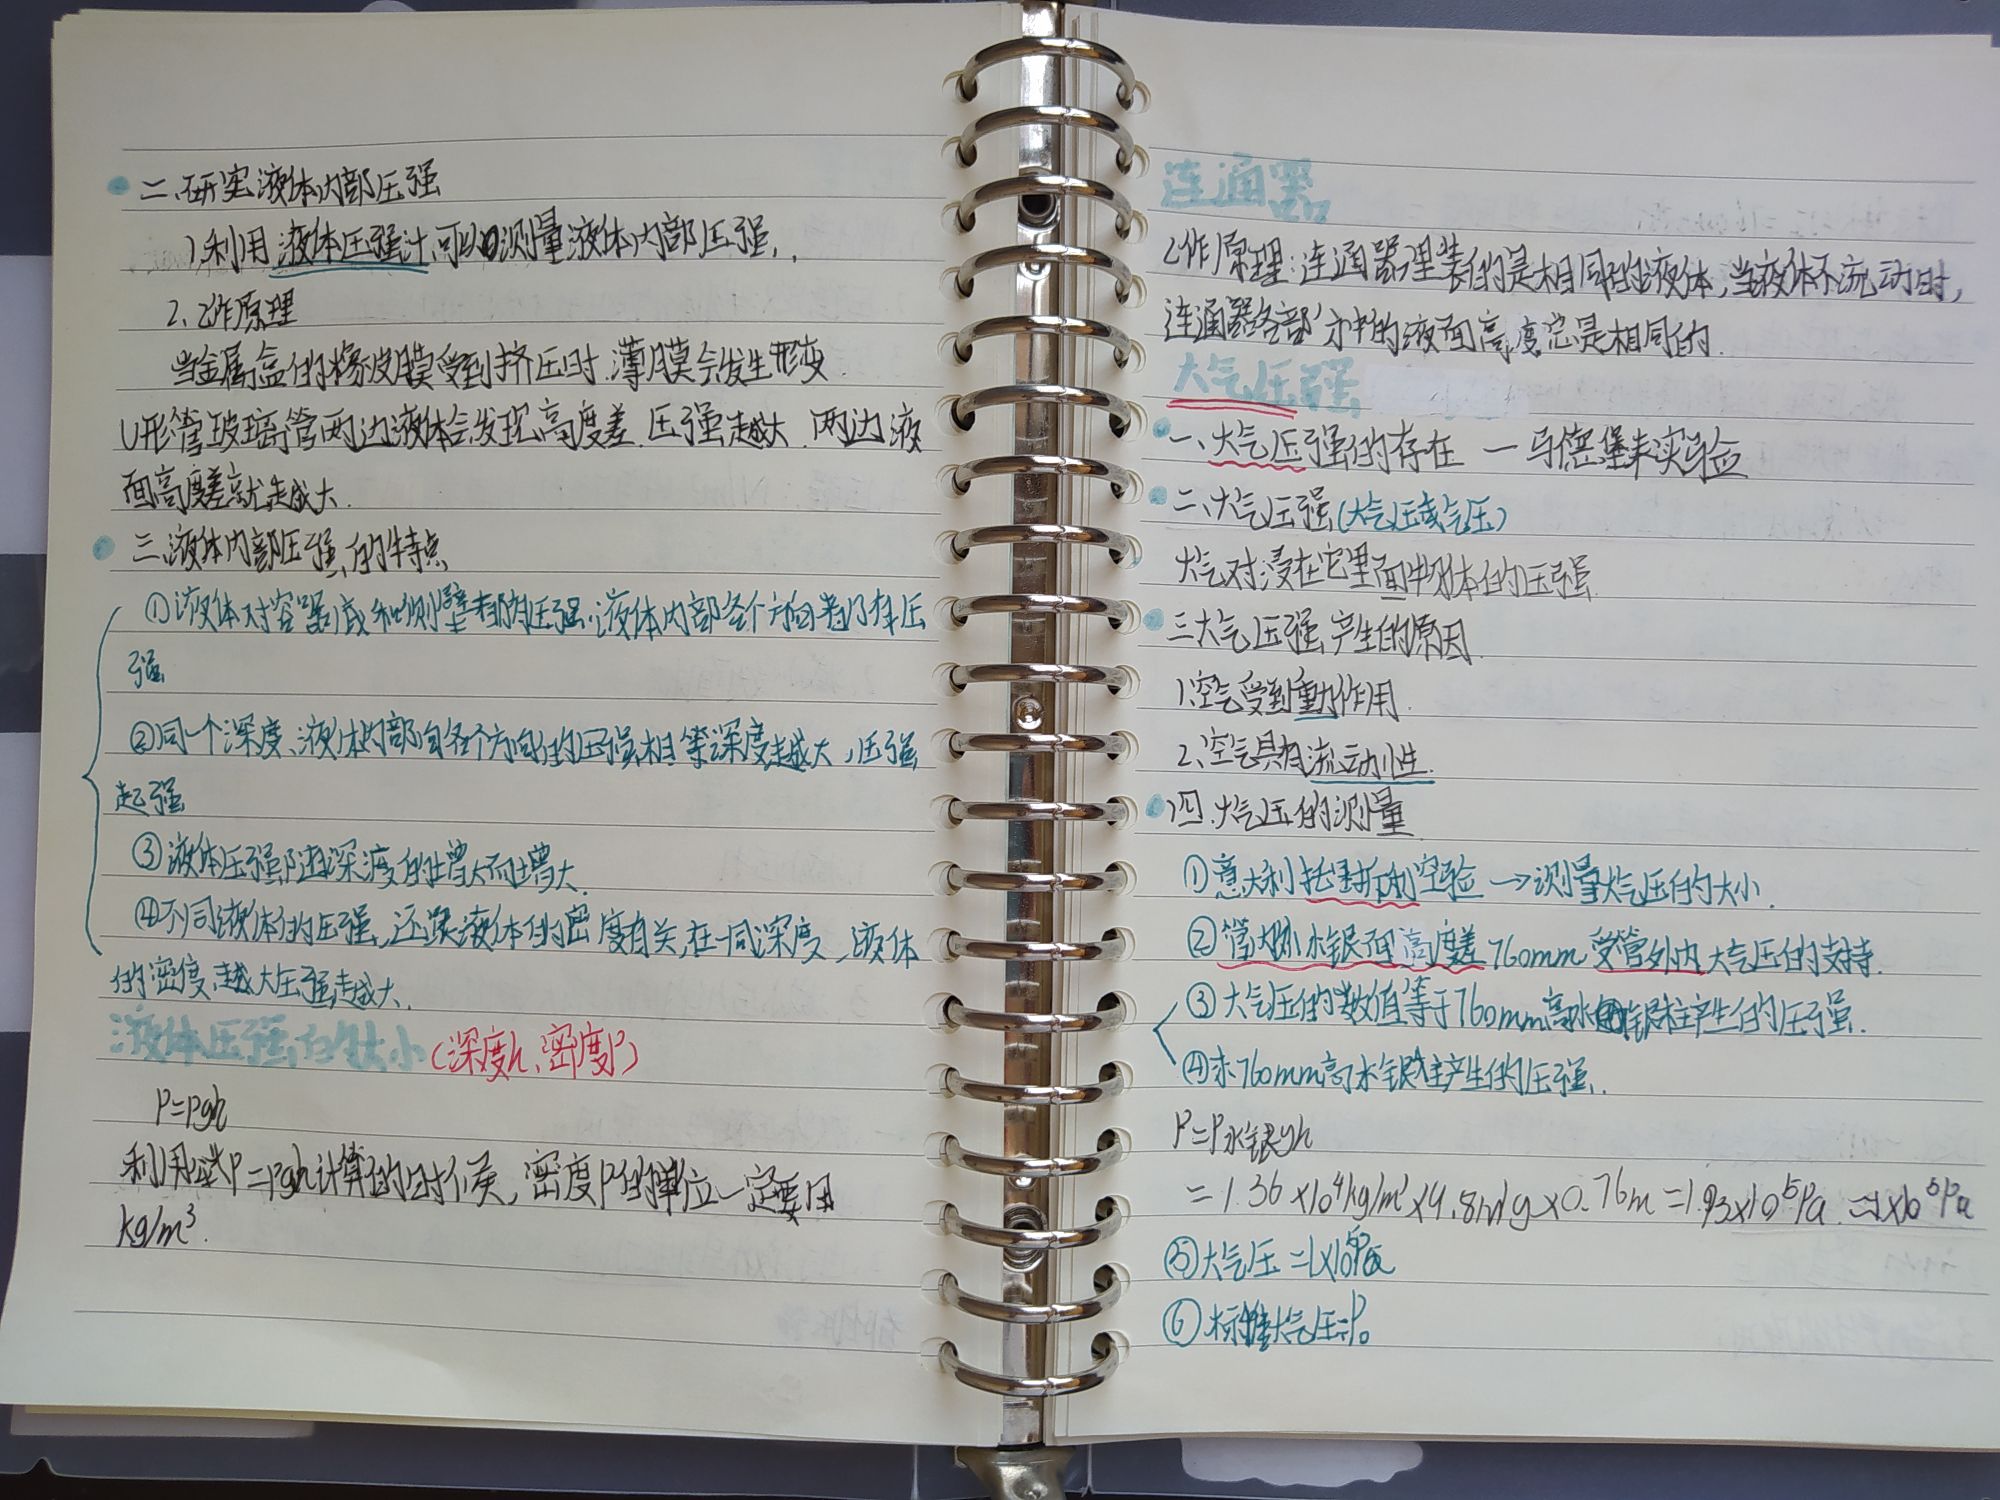 二、研究液体内部压强
1、利用液体压强计,可以测量液体内部压强.
2、工作原理
当金属盒的橡皮膜受到挤压时.薄膜会发生形变
U形管玻璃管两边液体会发现高度差.压强越大.两边液
面高度差就越大.
三、液体内部压强的特点
①液体对容器底和侧壁都有压强.液体内部各个方向都有压
强
②同一个深度、液体内部向各个方向的压强相等深度越大,压强
起强
③液体压强随深度的增大而增大.
④不同液体的压强、还跟液体的密度有关,在一同深度、液体
的密度越大压强越大.
液体压强的大小(深度h、密度ρ)
P=ρgh
利用公式P=ρgh计算的时候,密度ρ的单位一定要用
kg/m³.
连通器
工作原理:连通器里装的是相同的液体,当液体不流动时,
连通器各部分中的液面高度总是相同的.
大气压强
一、大气压强的存在 — 马德堡实验
二、大气压强(大气压或气压)
大气对浸在它里面物体的压强
三大气压强产生的原因.
1.空气受到重力作用.
2、空气具有流动性.
四.大气压的测量
①意大利托里拆利实验→测量大气压的大小.
②管内外水银面高度差760mm受管外内大气压的支持.
③大气压的数值等于760mm高水银柱产生的压强.
④求760mm高水银柱产生的压强.
P=ρ水银gh
=1.36×10⁴kg/m³×9.8N/g×0.76m=1.03×10⁵Pa.≈1×10⁵Pa
⑤大气压=1×10⁵Pa
⑥标准大气压:P₀